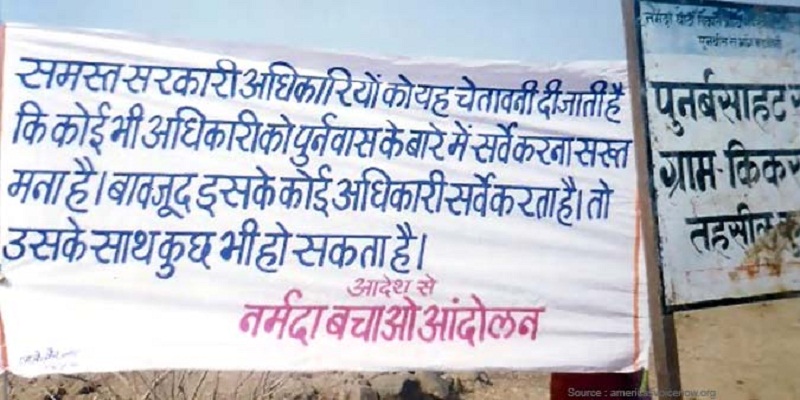 समस्त सरकारी अधिकारियों को यह चेतावनी दी जाती है
कि कोई भी अधिकारी को पुर्नवास के बारे में सर्वे करना सख्त
मना है। बावजूद इसके कोई अधिकारी सर्वे करता है। तो
उसके साथ कुछ भी हो सकता है।
आदेश से
नर्मदा बचाओ आंदोलन
नर्मदा घाटी विकास
पुनर्बसाहट
ग्राम-किकर
तहसील
Source : americasvoicenow.org